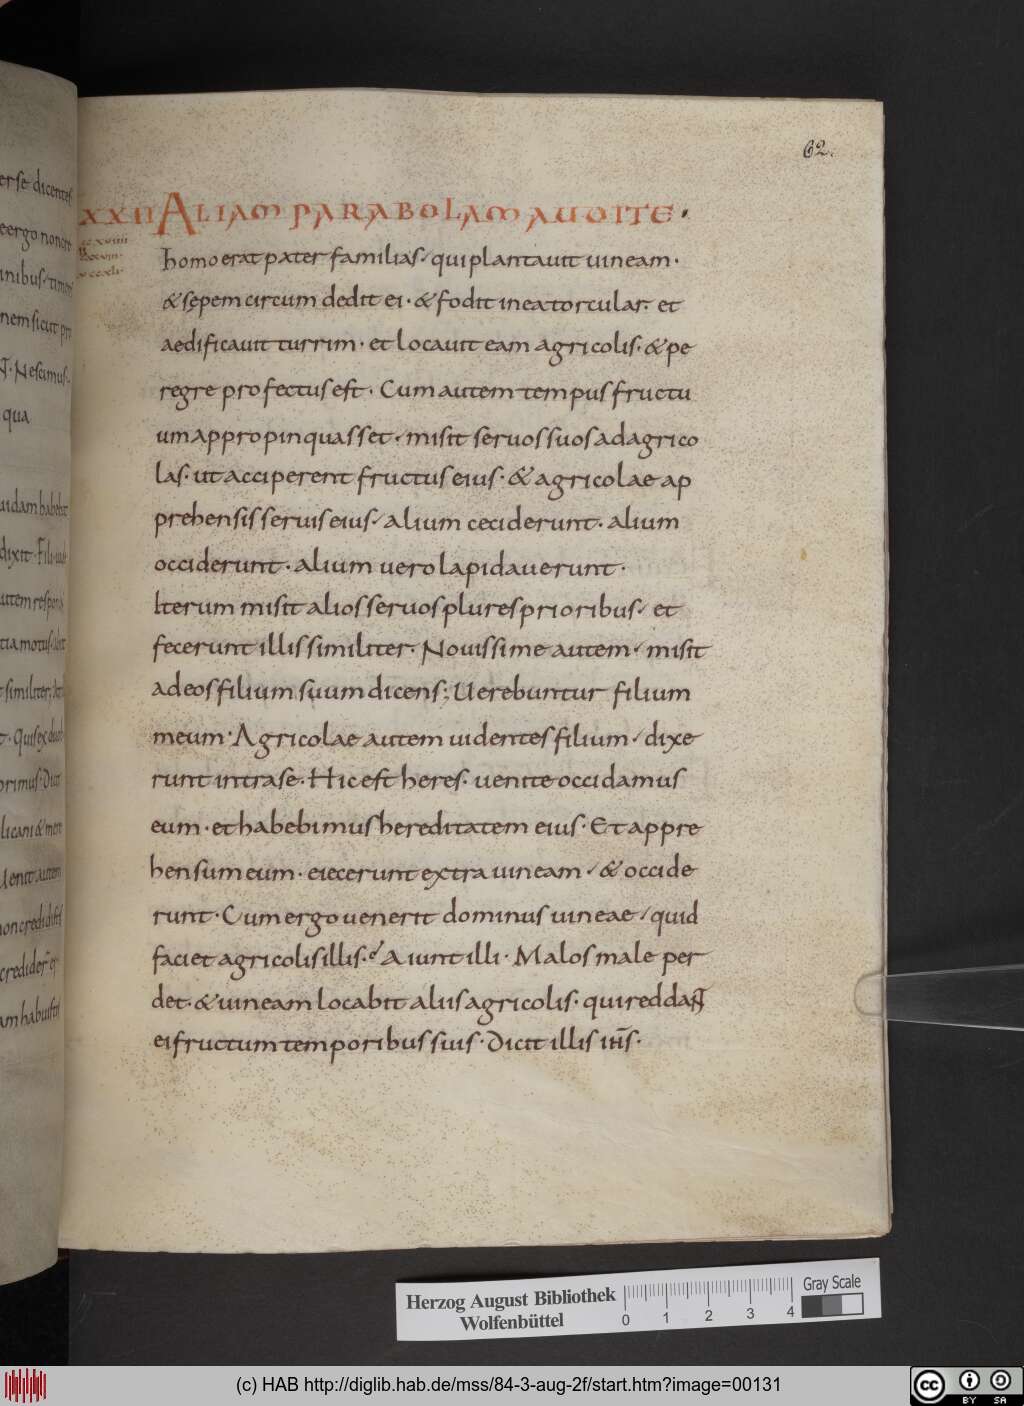 62.
XXII ALIAM PARABOLAM AUDITE.
homo erat pater familias, qui plantauit uineam.
& sępem circum dedit ei. & fodit in ea torcular. et
aedificauit turrim. et locauit eam agricolis. & pe
regre profectus est. Cum autem tempus fructu
um appropinquasset, misit seruos suos ad agrico
las. ut acciperent fructus eius. & agricolae ap
prehensis seruis eius, alium ceciderunt. alium
occiderunt. alium uero lapidauerunt.
Iterum misit alios seruos plures prioribus, et
fecerunt illis similiter. Nouissime autem, misit
ad eos filium suum dicens; Uerebuntur filium
meum. Agricolae autem uidentes filium, dixe
runt intra se. Hic est heres. uenite occidamus
eum. et habebimus hereditatem eius. Et appre
hensum eum. eiecerunt extra uineam, & occide
runt. Cum ergo uenerit dominus uineae, quid
faciet agricolis illis. Aiunt illi. Malos male per
det. & uineam locabit aliis agricolis. qui reddant
ei fructum temporibus suis. Dicit illis ih̄s.
er se dicentes
ergo non
inibus, timem
nem sicut
Nescimus.
qua
uidam habebat
dixit. Fili uade
autem respond
motus, abiit
similiter. At
Quis ex duob
primus. Dicit
licani & mere
Uenit autem
non credidistis
am habuistis
Herzog August Bibliothek
Wolfenbüttel
0 1 2 3 4
Gray Scale
(c) HAB http://diglib.hab.de/mss/84-3-aug-2f/start.htm?image=00131
cc BY SA